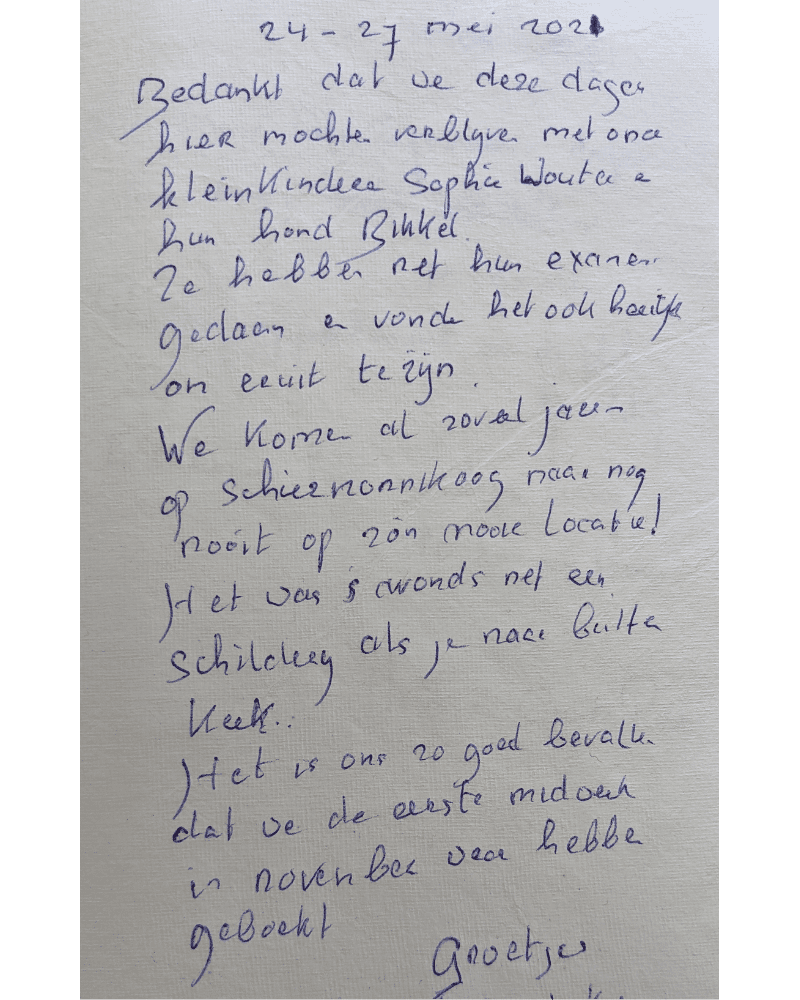 24 - 27 mei 2021
Bedankt dat we deze dagen
hier mochten verblijven met onze
kleinkinderen Sophie Wouter en
hun hond Bikkel.
Ze hebben net hun examen
gedaan en vonden het ook heerlijk
om eruit te zijn.
We komen al zoveel jaren
op Schiermonnikoog maar nog
nooit op zo'n mooie locatie!
Het was 's avonds net een
schilderij als je naar buiten
keek..
Het is ons zo goed bevallen
dat we de eerste midweek
in november weer hebben
geboekt
Groetjes